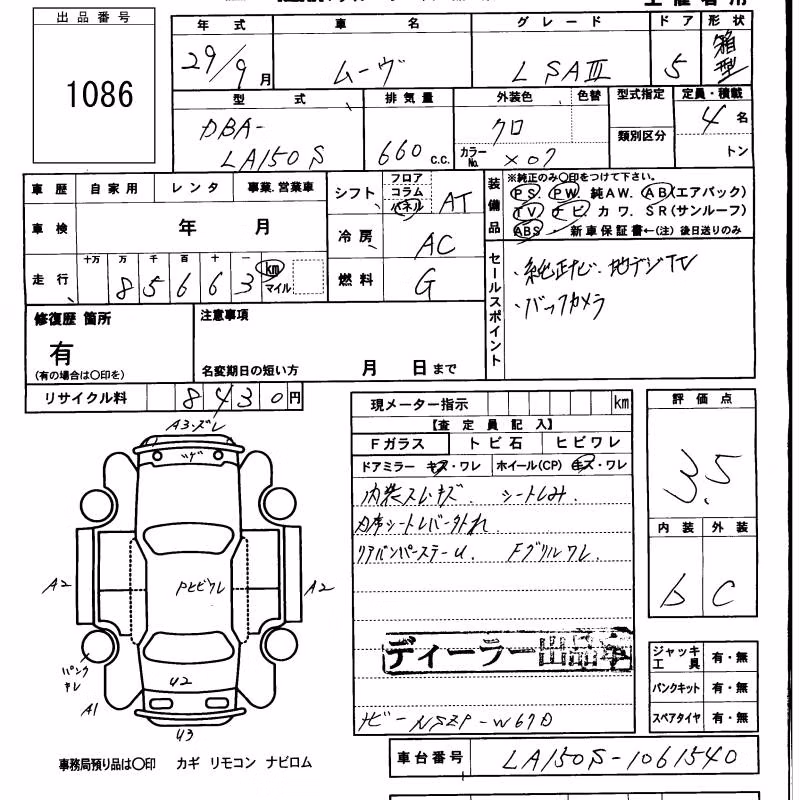 出品番号
1086
年式 車名 グレード ドア 形状
29/9月 ムーヴ L SAIII 5 箱型
型式 排気量 外装色 色替 型式指定 定員・積載
DBA-LA150S 660c.c. クロ 類別区分 4名
カラーNo. X07 トン
車歴 自家用 レンタ 事業.営業車
車検 年 月
走行 十万 万 千 百 十 一 km マイル
8 5 6 6 3
シフト フロア コラム パネル AT
冷房 AC
燃料 G
装備品
※純正のみ〇印をつけて下さい。
PS. PW. 純AW. AB(エアバック)
TV ナビ. カワ. SR(サンルーフ)
ABS 新車保証書←(注)後日送りのみ
セールスポイント
・純正ナビ・地デジTV
・バックカメラ
修復歴 箇所
有
(有の場合は〇印を)
注意事項
名変期日の短い方 月 日まで
リサイクル料 8430円
A3・ズレ
A2
PヒビワレA2
U2
パンク
A1
U3
現メーター指示 km
【査定員記入】
Fガラス トビ石 ヒビワレ
ドアミラー キズ・ワレ ホイール(CP) キズ・ワレ
内装スレ・キズ. シートしみ.
シートレバー外れ.
リアバンパーステーU. Fグリルワレ.
ディーラー出品車
ナビーNSZP-W67D
評価点
3.5
内装 外装
b C
ジャッキ工具 有・無
パンクキット 有・無
スペアタイヤ 有・無
事務局預り品は〇印 カギ リモコン ナビロム
車台番号 LA150S-1061540